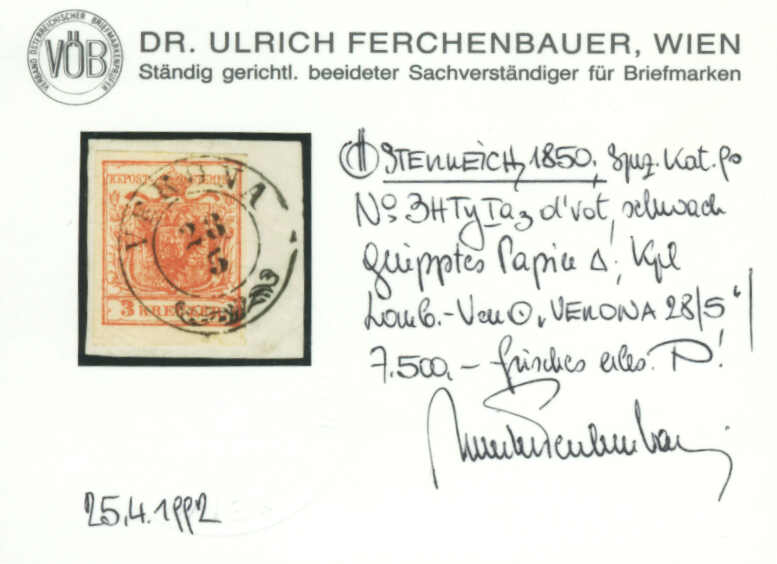 VERBAND ÖSTERREICHISCHER BRIEFMARKENPRÜFER
VÖB
DR. ULRICH FERCHENBAUER, WIEN
Ständig gerichtl. beeideter Sachverständiger für Briefmarken
VERONA
28
5
3 KREUZER
ÖSTERREICH, 1850, Spez. Kat.
No 3HTyIa3 d'rot, schwach
geripptes Papier
Lomb.-Ven VERONA 28/5"
7.500,- frisches erles. P!
25.4.1992